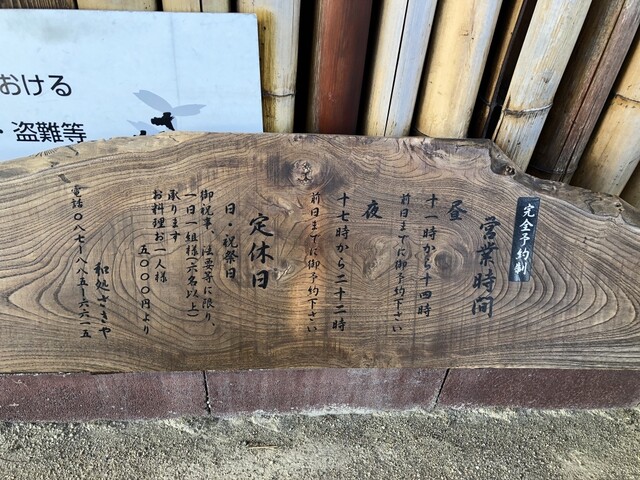 完全予約制
営業時間
昼
十一時から十四時
前日までに御予約下さい
夜
十七時から二十二時
前日までに御予約下さい
定休日
日・祝祭日
御祝事、法要等に限り、
一日一組様(六名以上)
承ります
お料理お一人様
五〇〇〇円より
和処ざきや
電話〇八七-八八五-六六一五
おける
・盗難等